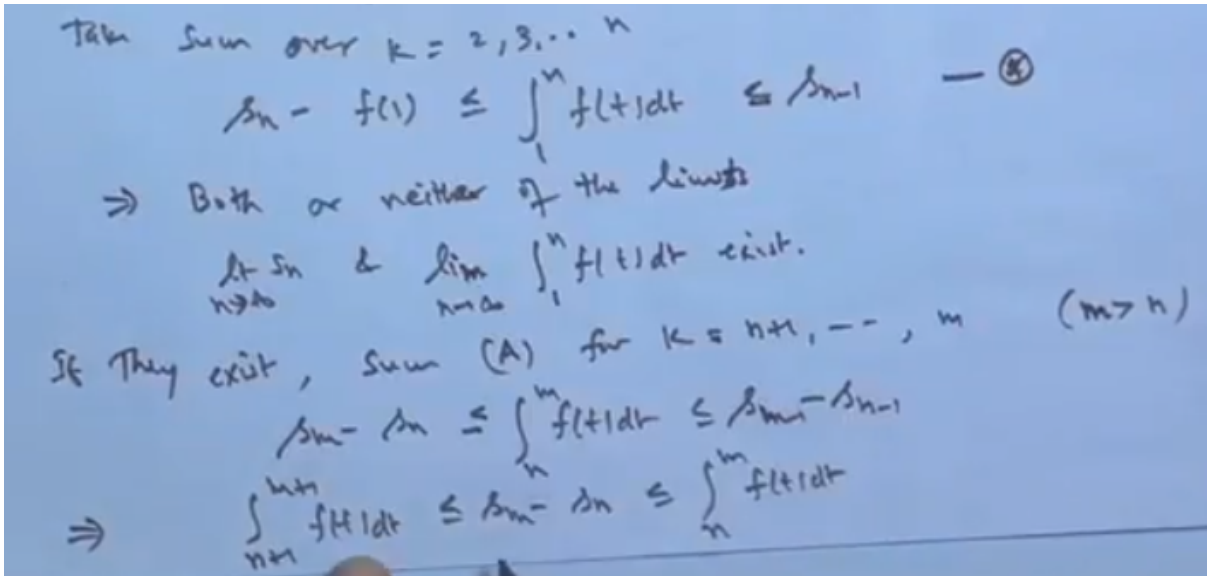 Take Sum over k = 2, 3, .. n
sn - f(1) ≤ ∫₁ⁿ f(t)dt ≤ sn-1 — ⊛
⇒ Both or neither of the limits
lt sn & lim ∫₁ⁿ f(t)dt exist.
n→∞ n→∞
If They exist, Sum (A) for k = n+1, --, m (m > n)
sm - sn ≤ ∫ₙᵐ f(t)dt ≤ sm-1 - sn-1
⇒ ∫ₙ₊₁ᵐ⁺¹ f(t)dt ≤ sm - sn ≤ ∫ₙᵐ f(t)dt